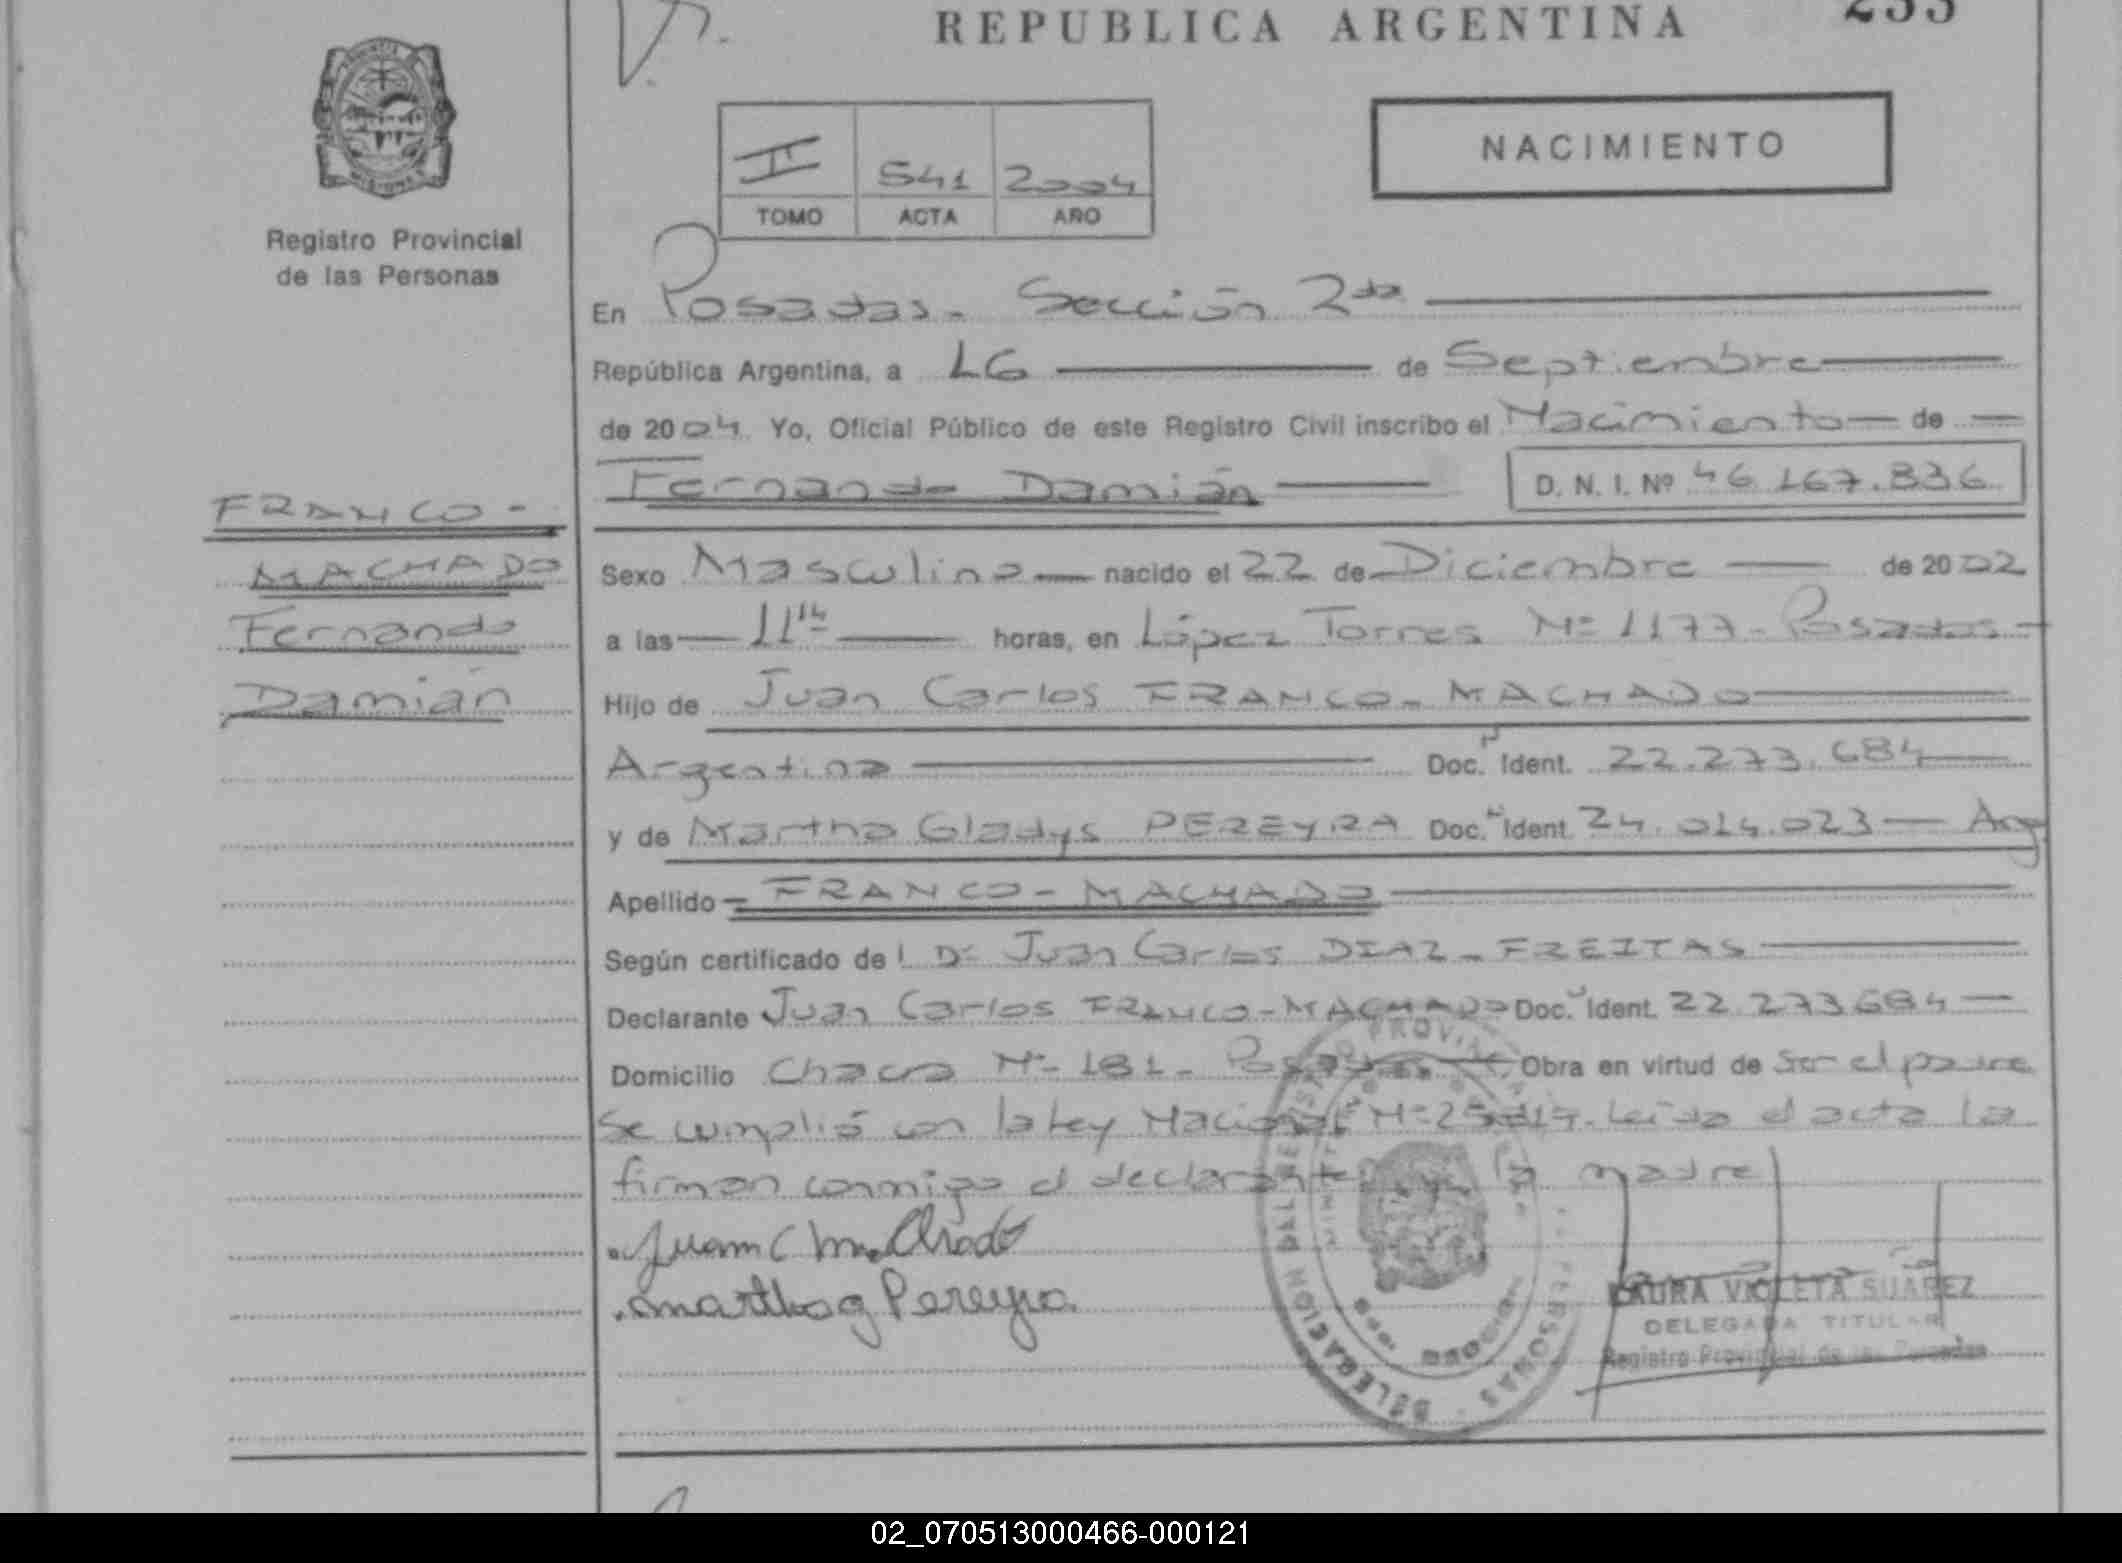 REPUBLICA ARGENTINA
Registro Provincial
de las Personas
II 541 2004
TOMO ACTA AÑO
NACIMIENTO
En Posadas - Sección 2da
República Argentina, a 16 de Septiembre
de 2004. Yo, Oficial Público de este Registro Civil inscribo el Nacimiento de
Fernando Damián D. N. I. Nº 46.167.836
FRANCO -
MACHADO
Fernando
Damián
Sexo Masculino nacido el 22 de Diciembre de 2002
a las 11 horas, en López Torres Nº 1177 - Posadas
Hijo de Juan Carlos FRANCO - MACHADO
Argentina Doc. Ident. 22.273.684
y de Martha Gladys PEREYRA Doc. Ident. 24.014.023 Arg
Apellido - FRANCO - MACHADO
Según certificado de l Dr Juan Carlos DIAZ - FREITAS
Declarante Juan Carlos FRANCO - MACHADO Doc. Ident. 22.273684
Domicilio Chacra Nº 181 - Posadas Obra en virtud de ser el padre
Se cumplió con la Ley Nacional Leida el acta la
firman conmigo el declarante y la madre
Juan C Machado
Martha g Pereyra.
LAURA VIOLETA SUAREZ
DELEGADA TITULAR
Registro Provincial de las Personas
DELEGACION DEL REGISTRO PROVINCIAL PERSONAS
02_070513000466-000121